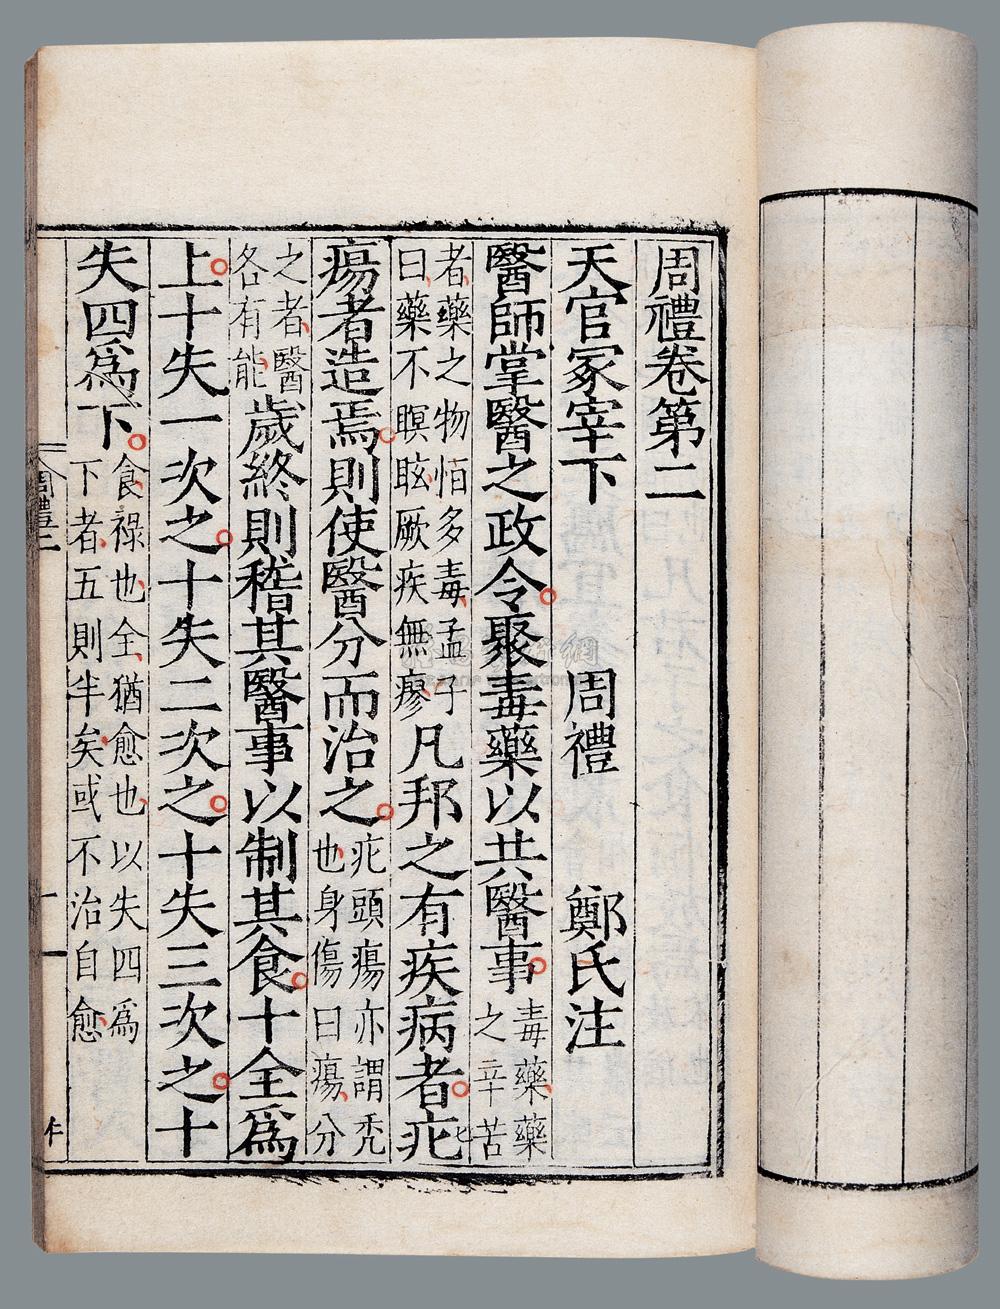 周禮卷第二
天官冢宰下　周禮　鄭氏注
醫師掌醫之政令聚毒藥以共醫事毒藥藥之辛苦
者藥之物恒多毒孟子曰藥不瞑眩厥疾無瘳凡邦之有疾病者疕
瘍者造焉則使醫分而治之疕頭瘍亦謂禿也身傷曰瘍分
之者醫各有能歲終則稽其醫事以制其食十全爲
上十失一次之十失二次之十失三次之十
失四爲下食祿也全猶愈也以失四爲下者五則半矣或不治自愈
周禮二
一